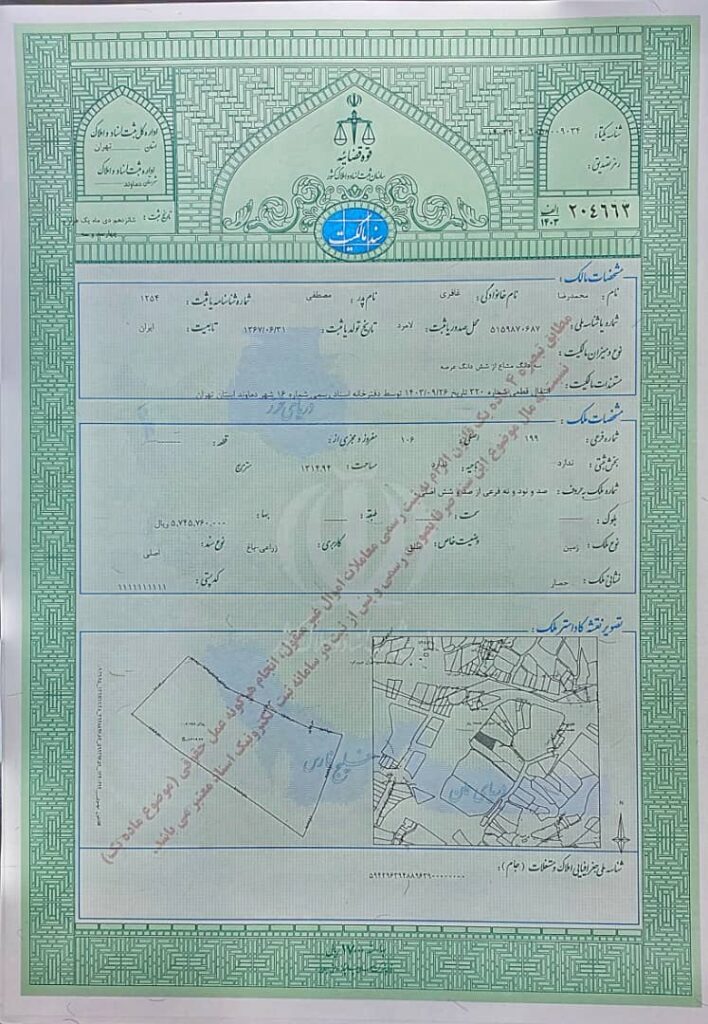 اداره کل ثبت اسناد و املاک
استان تهران
اداره ثبت اسناد و املاک
دماوند
تاریخ ثبت : شانزدهم دی ماه یک هزار
چهارصد و سه
قوه قضائیه
سازمان ثبت اسناد و املاک کشور
سند مالکیت
شناسه یکتا:
رمز تصدیق:
۲۰۴۶۶۳ الف ۱۴۰۳
مشخصات مالک :
نام : محمدرضا نام خانوادگی : غافری نام پدر : مصطفی شماره شناسنامه یا ثبت : ۱۲۵۴
شماره ملی: ۵۱۵۹۸۷۰۶۸۷ محل صدور یا ثبت: لامرد تاریخ تولد یا ثبت : ۱۳۶۷/۰۶/۳۱ تابعیت : ایران
نوع و میزان مالکیت : سه دانگ مشاع از شش دانگ عرصه
مستندات مالکیت : انتقال قطعی شماره ۳۲۰ تاریخ ۱۴۰۳/۰۹/۲۶ توسط دفترخانه اسناد رسمی شماره ۱۶ شهر دماوند استان تهران
مشخصات ملک :
شماره فرعی : ۱۹۹ اصلی : ۱۰۶ مفروز و مجزی از : قطعه :
بخش ثبتی : ندارد ناحیه : مساحت : ۱۳۱۲.۹۴ مترمربع
شماره ملک به حروف : صد و نود و نه فرعی از صد و شش اصلی
بلوک : سمت : طبقه : بها : ۵,۷۴۵,۷۶۰,۰۰۰ ریال
نوع ملک : زمین وضعیت خاص : کاربری : زراعی-باغ نوع سند : اصلی
نشانی ملک : حصار کد پستی : ۱۱۱۱۱۱۱۱۱۱
مطابق تبصره ۲ ماده یک قانون الزام به ثبت رسمی معاملات اموال غیر منقول، انجام هر گونه عمل حقوقی (موضوع ماده یک)
نسبت به مال موضوع این سند صرفا بصورت رسمی و پس از ثبت در سامانه ثبت الکترونیک اسناد معتبر می باشد.
دریای خزر
تصویر نقشه کاداستر ملک :
خلیج فارس
دریای عمان
N
شناسه ملی جغرافیایی املاک و مستغلات (جام) :